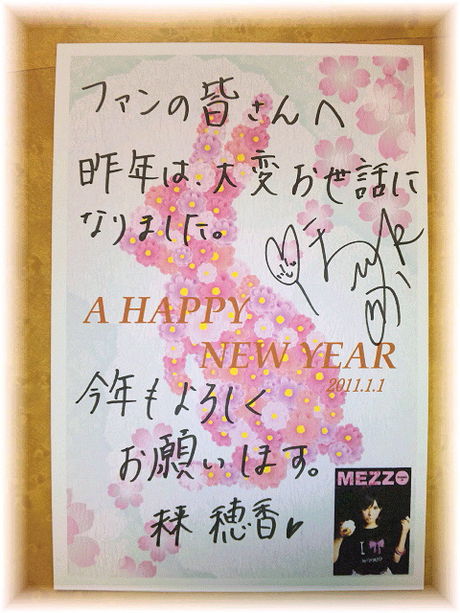 ファンの皆さんへ
昨年は、大変お世話に
なりました。
A HAPPY
NEW YEAR
2011.1.1
今年もよろしく
お願いします。
未来 穂香♥
MEZZO
I